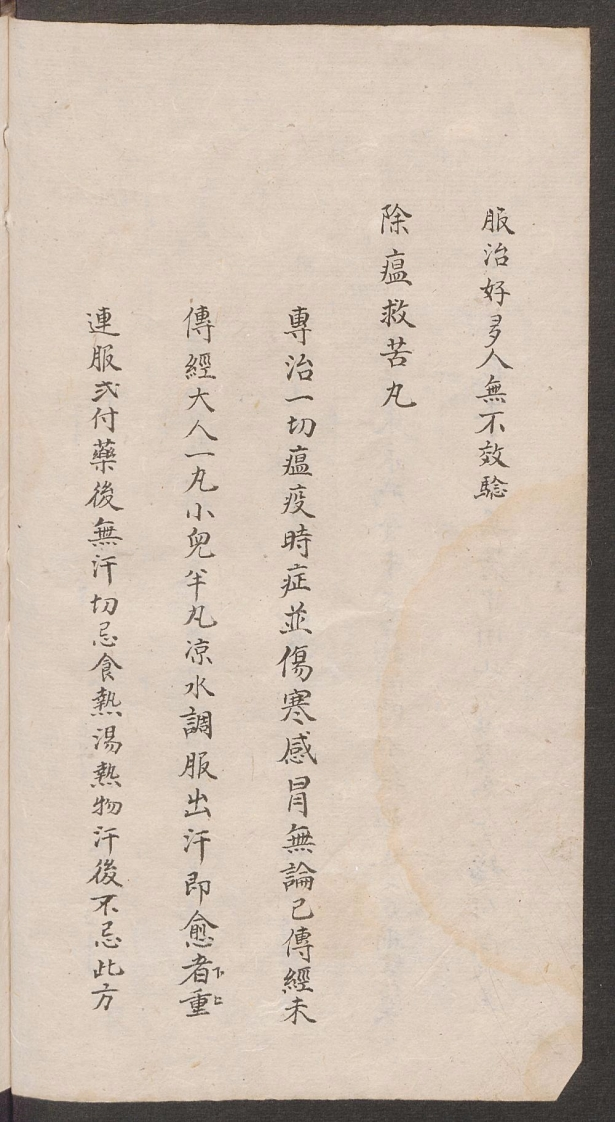 服治好多人無不效騐
除瘟救苦丸
專治一切瘟疫時症並傷寒感冒無論已傳經未
傳經大人一丸小兒半丸凉水調服出汗即愈者下重上
連服弍付藥後無汗切忌食熱湯熱物汗後不忌此方